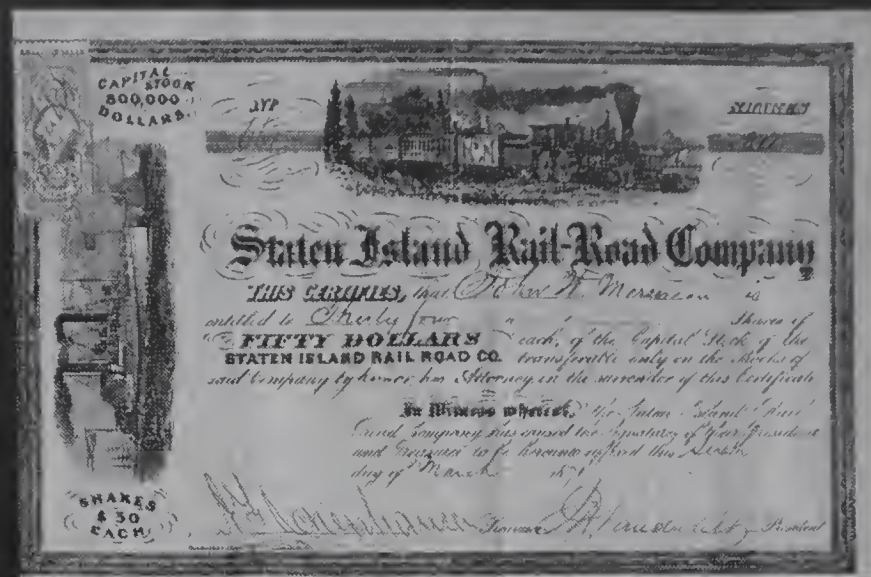 CAPITAL
STOCK
800,000
DOLLARS
Staten Island Rail-Road Company
THIS CERTIFIES, that John W. is
entitled to Thirty four Shares of
FIFTY DOLLARS each, of the Capital Stock of the
STATEN ISLAND RAIL ROAD CO. transferable only on the Books of
said Company by him or his Attorney on the surrender of this Certificate
In Witness whereof, the Staten Island Rail
Road Company has caused the Signatures of their President
and Treasurer to be hereunto affixed this
day of March
SHARES
$50
EACH
Treasurer President